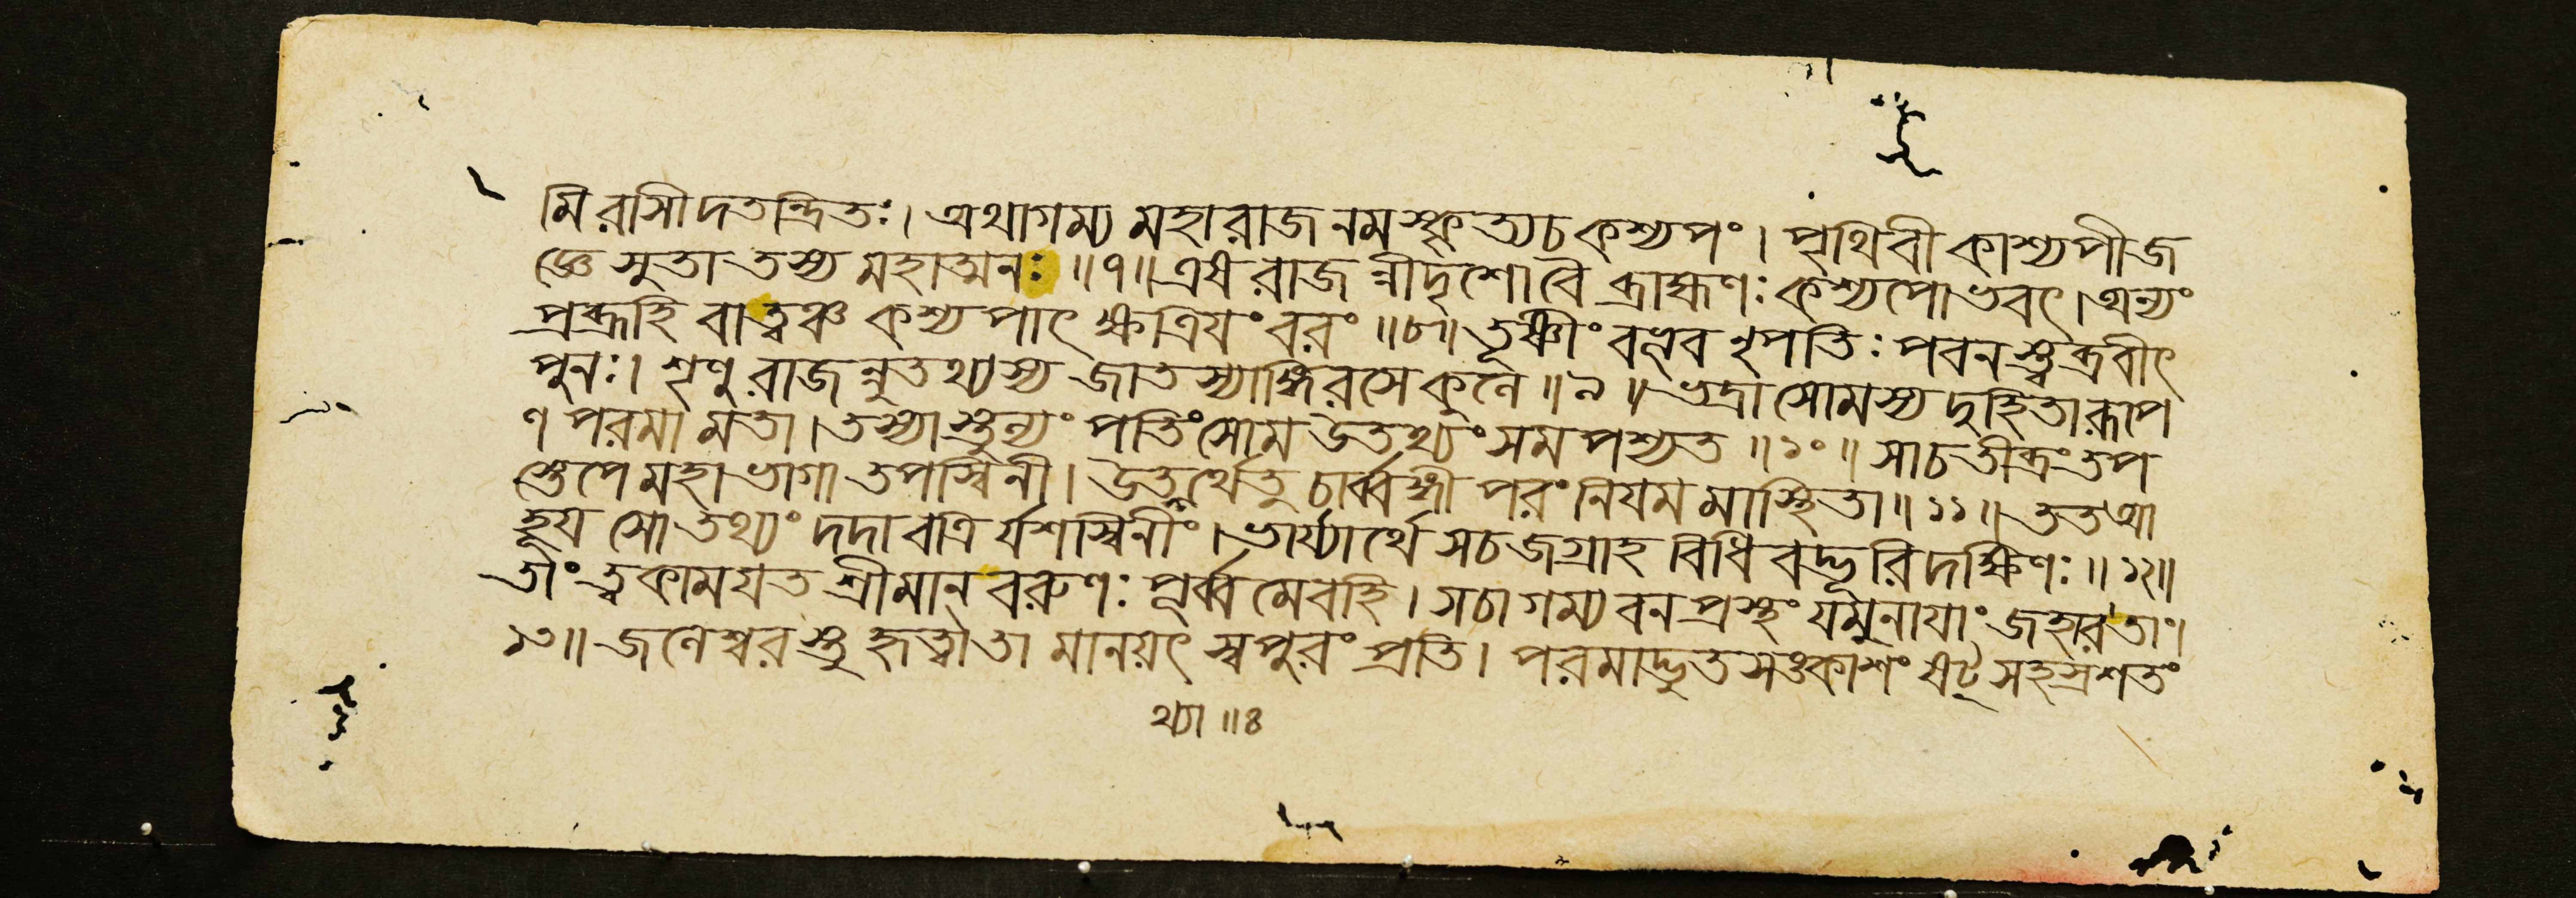 মিরাসীদতন্দ্রিতঃ। অথাগম্য মহারাজ নমস্কৃত্যচ কশ্যপং। পৃথিবী কাশ্যপীজ
জ্ঞে সুতা তস্য মহাত্মনঃ ॥৭॥ এষ রাজন্নীদৃশোবৈ ব্রাহ্মণঃ কশ্যপোভবৎ। অন্যং
প্রব্রূহি বাত্বঞ্চ কশ্যপাৎ ক্ষত্রিযং বরং ॥৮॥ তূষ্ণীং বভূব নৃপতিঃ পবনস্ত্বব্রবীৎ
পুনঃ। শৃণু রাজন্নুতথ্যস্য জাতস্যাঙ্গিরসে কুলে ॥৯॥ ভদ্রা সোমস্য দুহিতা রূপে
ণ পরমা মতা। তস্যাস্তুল্যং পতিং সোম উতথ্যং সমপশ্যত ॥১০॥ সাচ তীব্রং তপ
স্তেপে মহাভাগা তপস্বিনী। উতথ্যার্থেতু চার্ব্বঙ্গী পরং নিযমমাস্থিতা॥১১॥ ততআ
হূয সোতথ্যং দদাবত্রির্যশস্বিনীং। ভার্য্যার্থে সচ জগ্রাহ বিধিবদ্ভূরিদক্ষিণঃ॥১২॥
তাং ত্বকামযত শ্রীমান বরুণঃ পূর্ব্বমেবহি। সচাগম্য বনপ্রস্থং যমুনাযাং জহারতাং।
১৩॥ জলেশ্বরস্তু হৃত্বাতা মানয়ৎ স্বপুরং প্রতি। পরমাদ্ভুতসঙ্কাশং ষট্ সহস্রশতং
থ্যা ॥৪